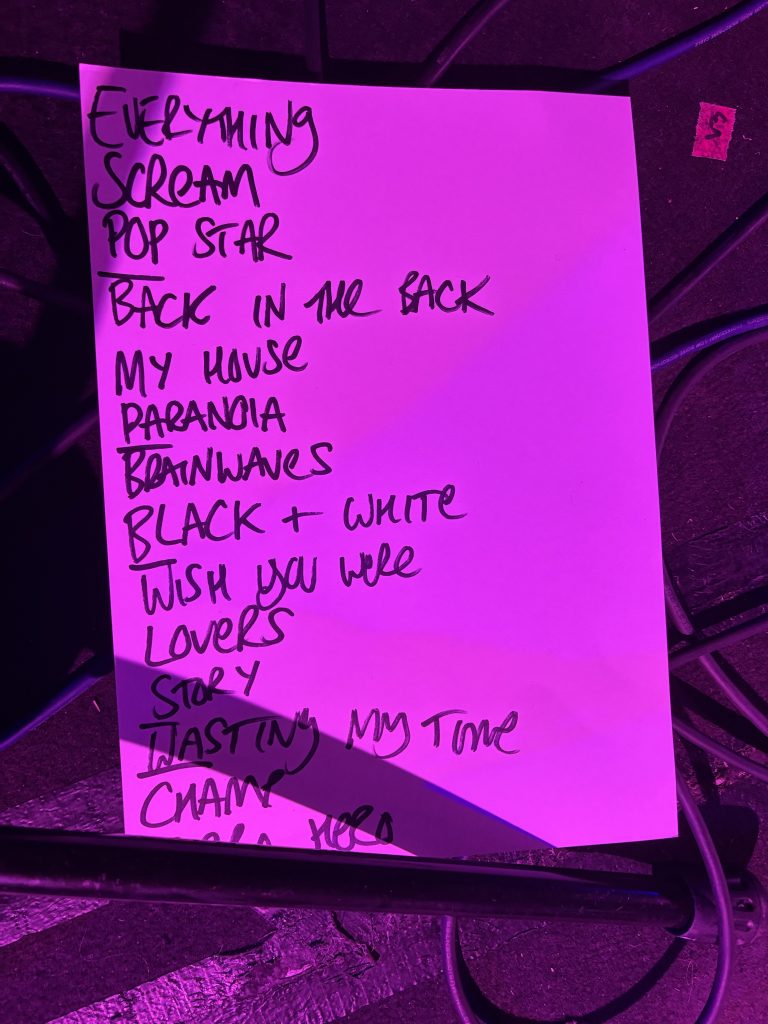 EVERYTHING
SCREAM
POP STAR
BACK IN THE BACK
MY HOUSE
PARANOIA
BRAINWAVES
BLACK + WHITE
WISH YOU WERE
LOVERS
STORY
WASTING MY TIME
CHAMP
HERO